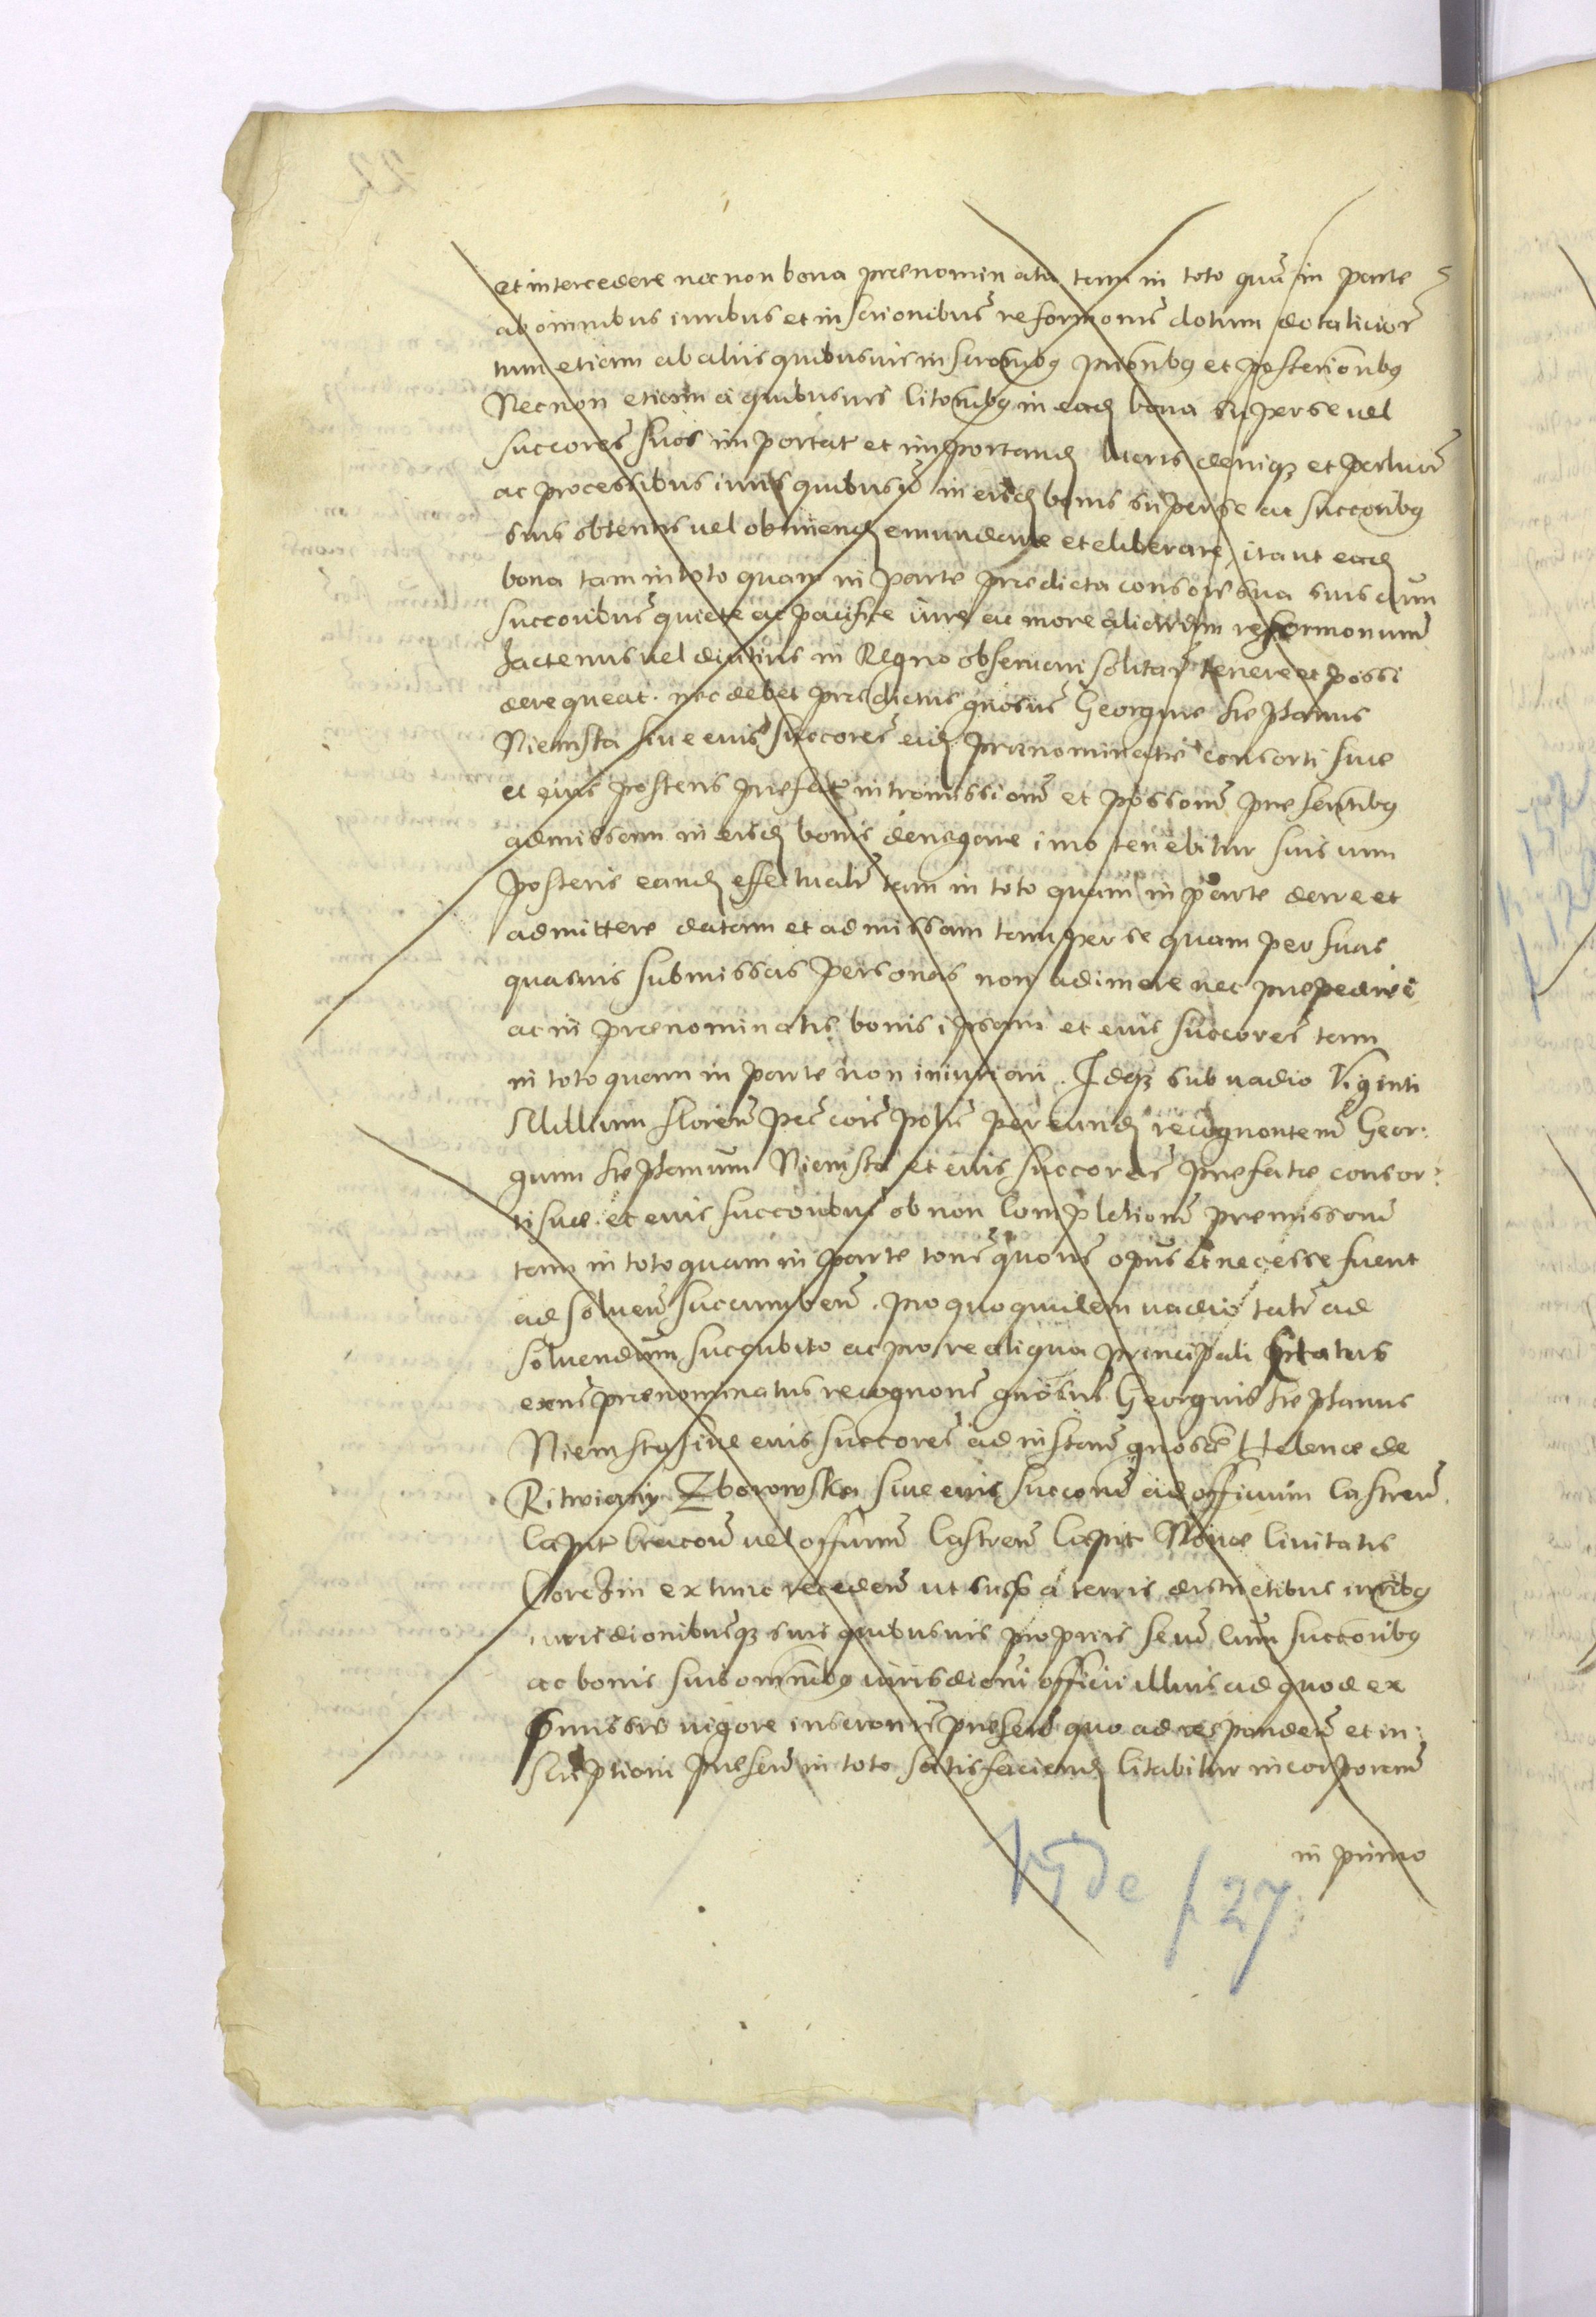 et intercedere nec non bona prenominata tam in toto quā in parte
ab omnibus iuribus et inscrionibus̄ reformonis̄ dotum dotaliciorr̄
tum etiam ab aliis quibusuis inscronibꝰ prioribꝰ et posterioribꝰ
Necnon etiam a quibusuis litōnibꝰ in eadꝫ bona super se uel
succores̄ suos importat̄ et importandꝫ lucris deniqꝫ et perlucr̄
ac processibus iuris quibusuis in eisdꝫ bonis super se ac succoribꝰ
suis obtentis uel obtinendꝫ emundare et eliberare, ita ut eadꝫ
bona tam in toto quam in parte predicta consors sua suis cum
succoribus̄ quiete ac pacifice iure ac more aliarum reformonum̄
hactenus uel diutius in Regno obseruari solitar̄ tenere et possi
dere queat. nec debet predictus gnosus̄ Georgius Stephanus
Niemsta siue euis succores̄ eidꝫ prenominatæ consorti suæ
et eius posteris prefat̄ intromissionē et possonē presentibꝰ
admissam in eisdꝫ bonis denegare imo tenebitur suis cum
posteris eandꝫ effectualr̄ tam in toto quam in parte dare et
admittere datam et admissam tam per se quam per suas
quasuis submissas personas non adimere nec prepedire
ac in prenominatis bonis ipsam et euis succores̄ tam
in toto quam in parte non iniuriari. Idqꝫ sub uadio Viginti
Millium floren̄ pec̄ cois̄ polis̄ per eundꝫ recognontem̄ Geor:
gium Stephanum Niemsta et euis succores̄ prefatæ consor:
ti suæ et euis succoribus̄ ob non completionē premissorū
tam in toto quam in parte tones̄ quones̄ opus et necesse fuerit
ad soluen̄ succumben̄. pro quo quidem uadio tatr̄ ad
soluendum succubito ac pro re aliqua principali citatus
exns̄ prenominatus recognons̄ gnosus̄ Georgius Stephanus
Niemsta siue euis succores̄ ad instan̄ gnosæ Helenæ de
Ritwiany Zborowska siue euis succorū ad officium Castren̄
Capit̄ Cracoū uel officium̄ Castren̄ Capit̄ Nouæ Ciuitatis
Corczin ex tunc receden̄ ut suꝑ a terris districtibus iuribꝰ
iurisdionibusqꝫ suis quibusuis propriis se cum succoribꝰ
ac bonis suis omnibꝰ iurisdioni officii illius ad quod ex
premissis uigore inscronis̄ presen̄ quo ad responden̄ et in:
scriptioni presen̄ in toto satisfaciendꝫ citabitur incorporan̄
in primo
Vide f 27